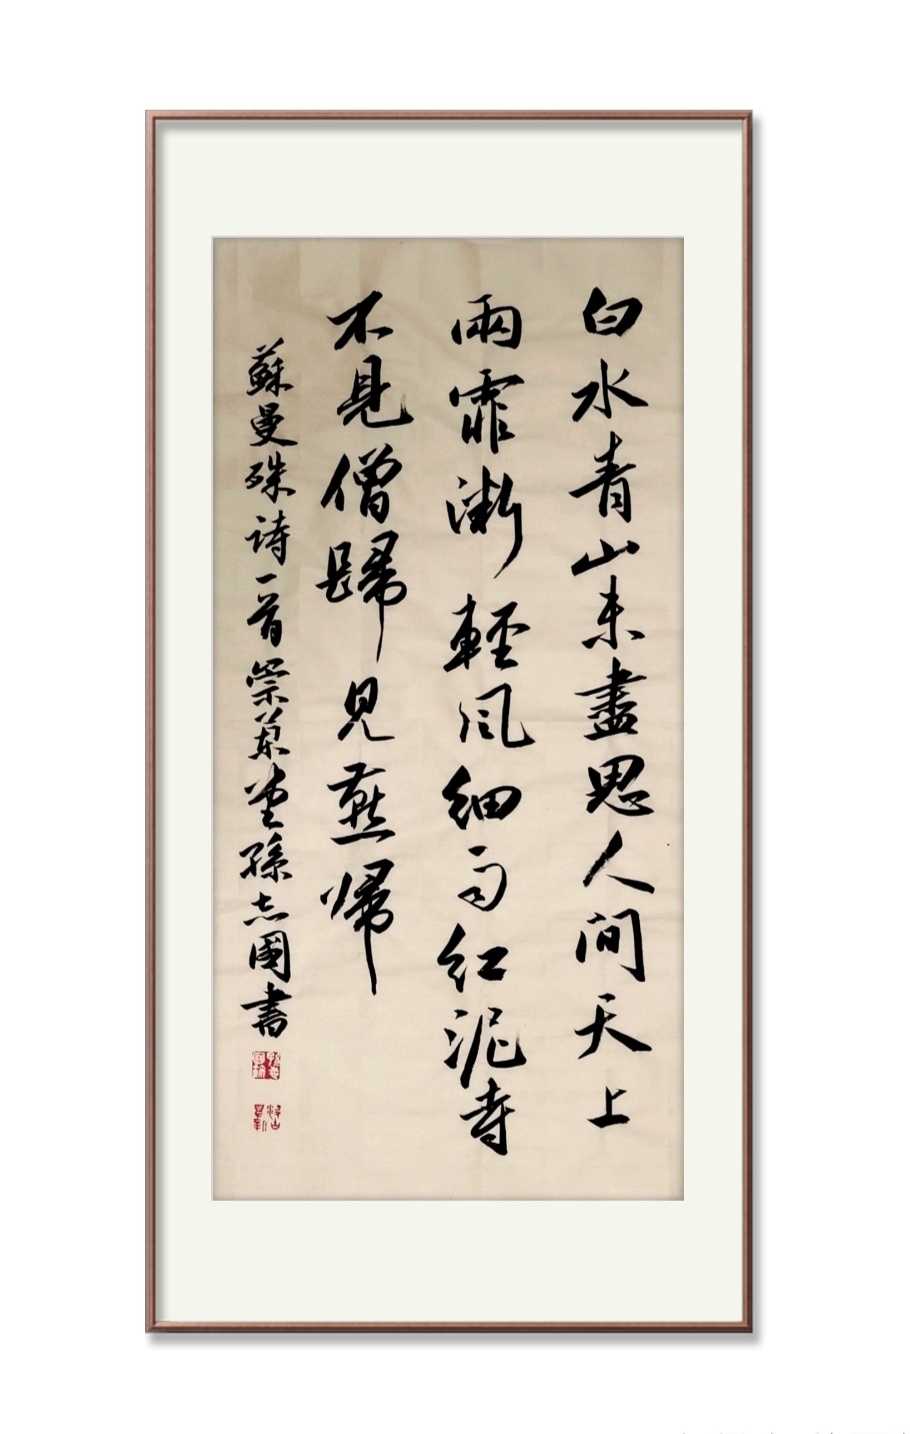 白水青山未盡思人間天上
兩霏漸輕風細雨紅泥寺
不見僧歸見燕歸
蘇曼殊诗一首崇堂孫志國書